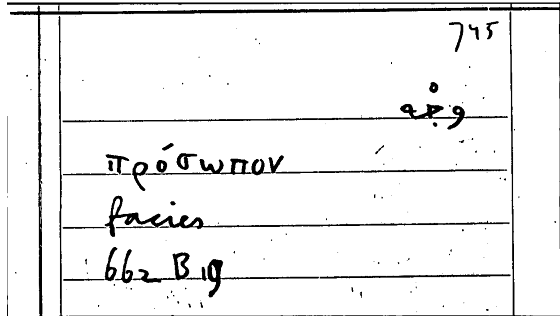 745
πρόσωπον
facies
662 B 19